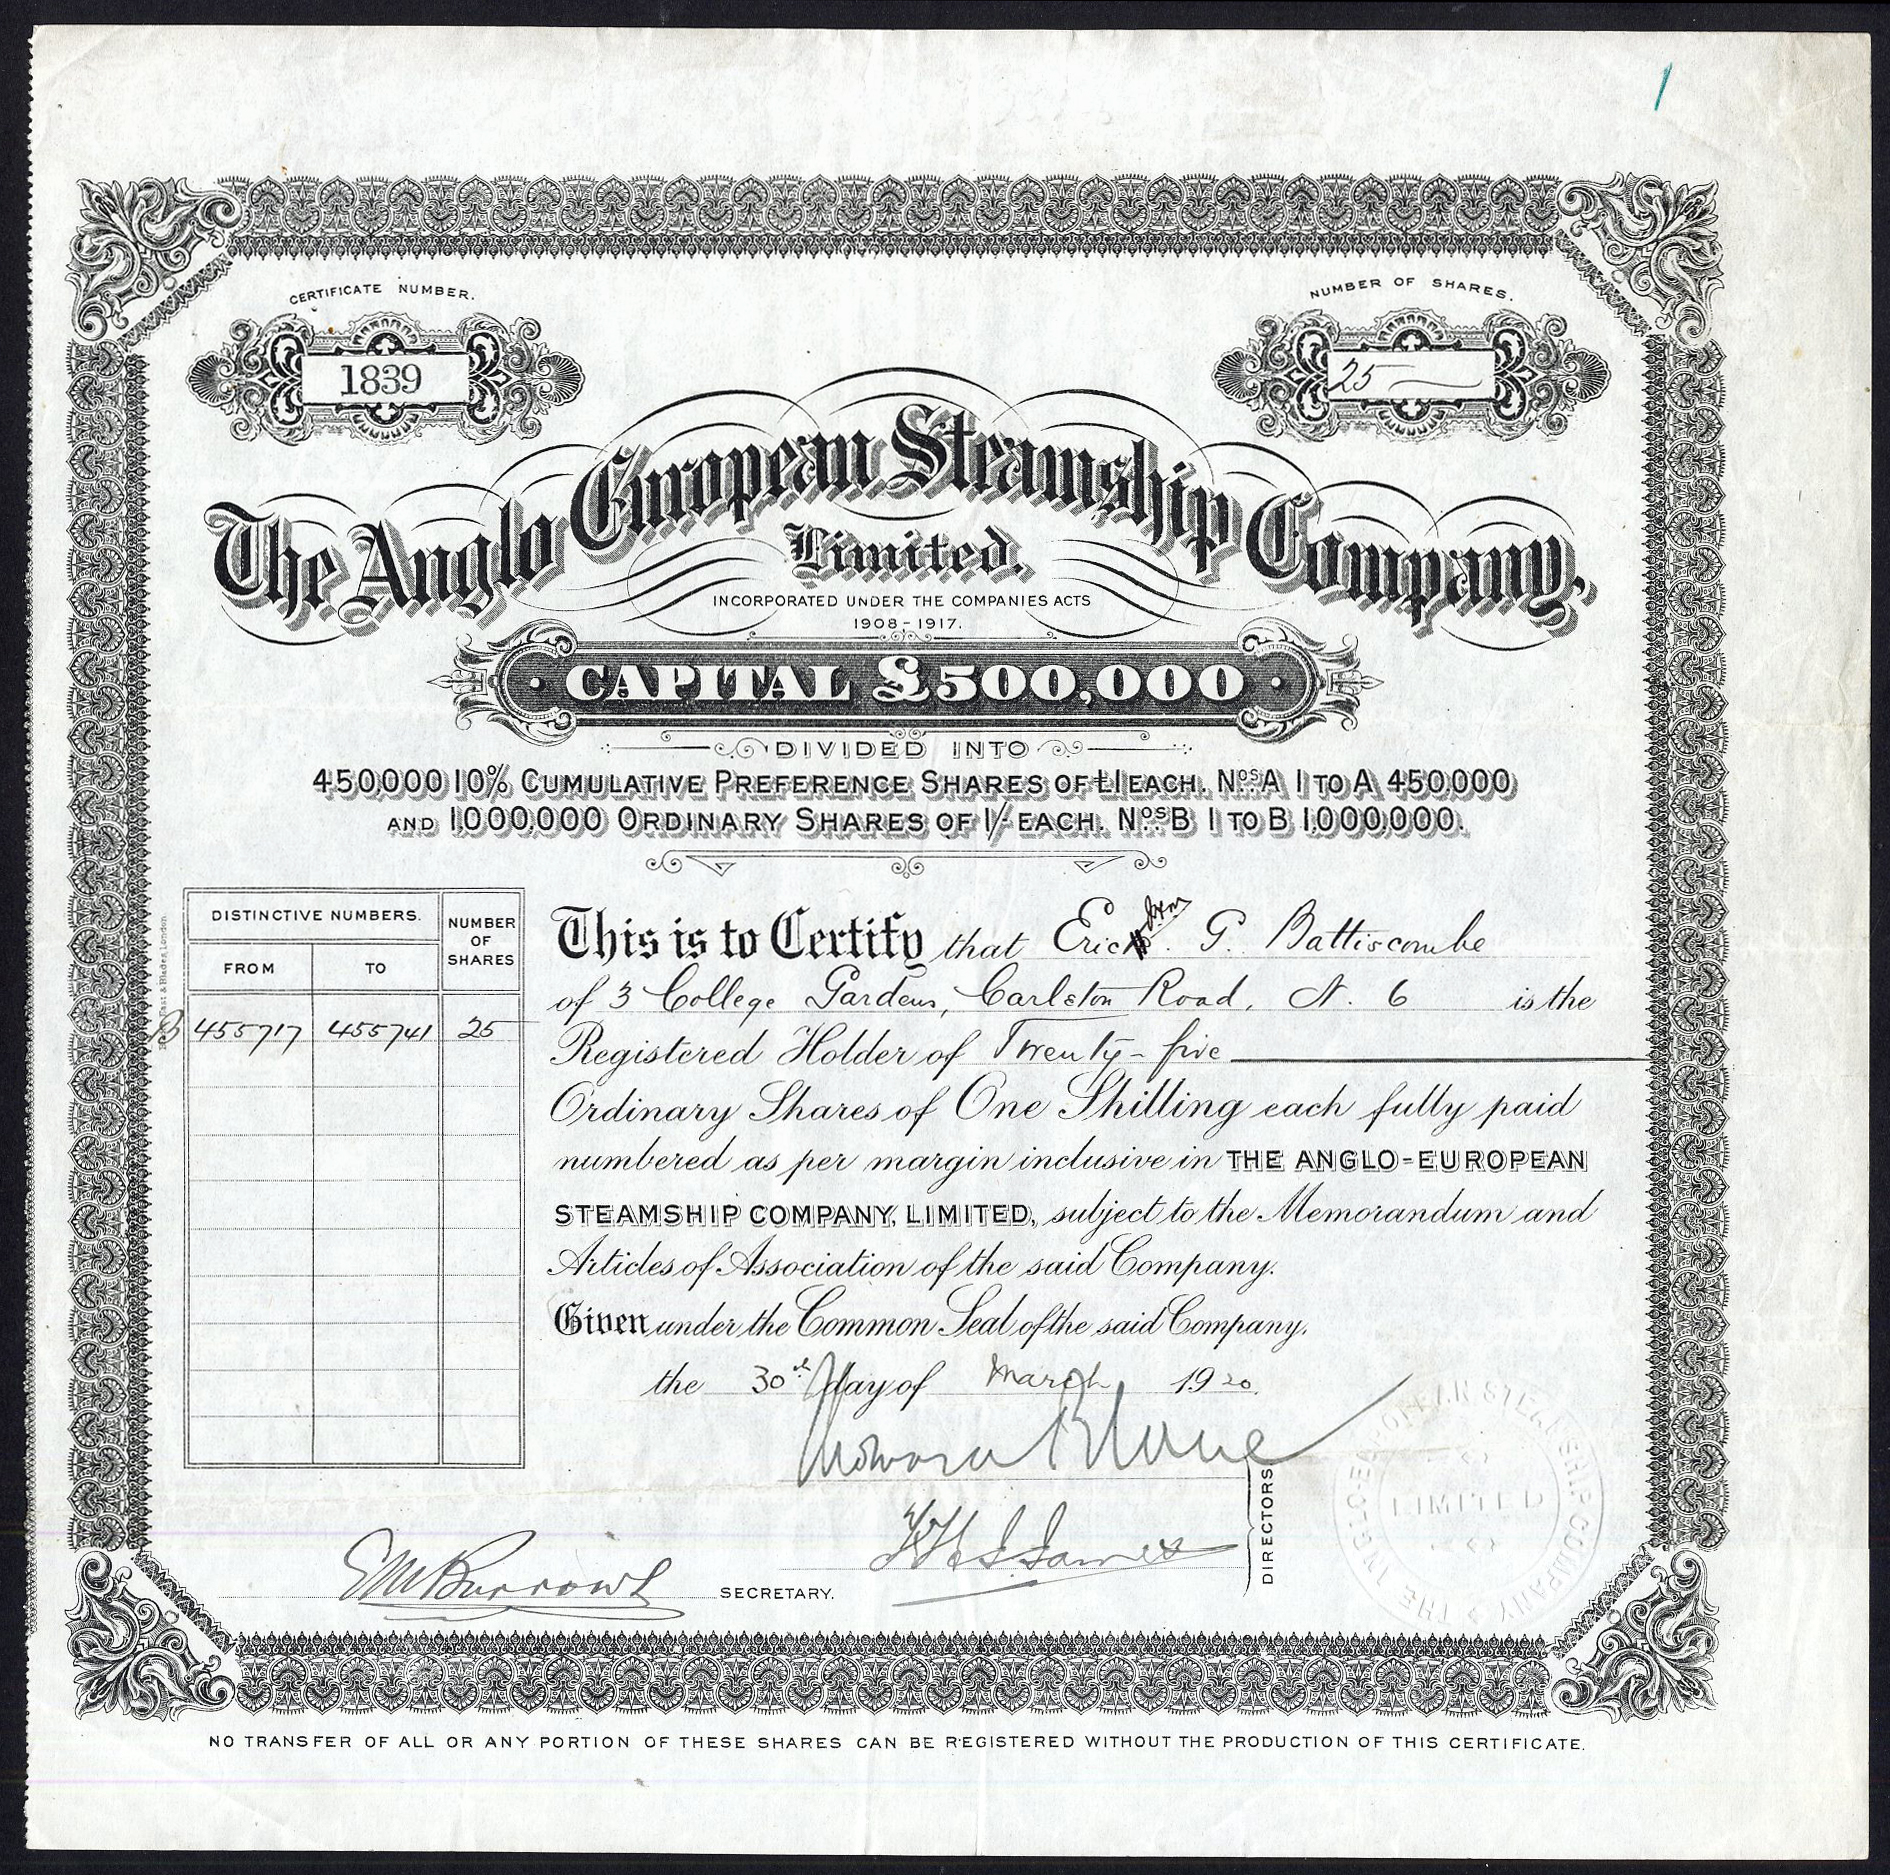 CERTIFICATE NUMBER.
1839
NUMBER OF SHARES.
25
The Anglo European Steamship Company,
Limited.
INCORPORATED UNDER THE COMPANIES ACTS
1908-1917.
CAPITAL £500,000
DIVIDED INTO
450,000 10% CUMULATIVE PREFERENCE SHARES OF £1 EACH. Nos. A 1 TO A 450,000
AND 1,000,000 ORDINARY SHARES OF 1/- EACH. Nos. B 1 TO B 1,000,000.
DISTINCTIVE NUMBERS.
NUMBER OF SHARES
FROM
TO
B 455717 455741 25
East & Blades, London
This is to Certify that Eric G. Battiscombe
of 3 College Gardens, Carlston Road, N. 6 is the
Registered Holder of Twenty-five
Ordinary Shares of One Shilling each fully paid
numbered as per margin inclusive in THE ANGLO-EUROPEAN
STEAMSHIP COMPANY, LIMITED, subject to the Memorandum and
Articles of Association of the said Company.
Given under the Common Seal of the said Company.
the 30th day of March 1920.
DIRECTORS
E M Burrows
SECRETARY.
THE ANGLO-EUROPEAN STEAMSHIP COMPANY
LIMITED
NO TRANSFER OF ALL OR ANY PORTION OF THESE SHARES CAN BE REGISTERED WITHOUT THE PRODUCTION OF THIS CERTIFICATE.